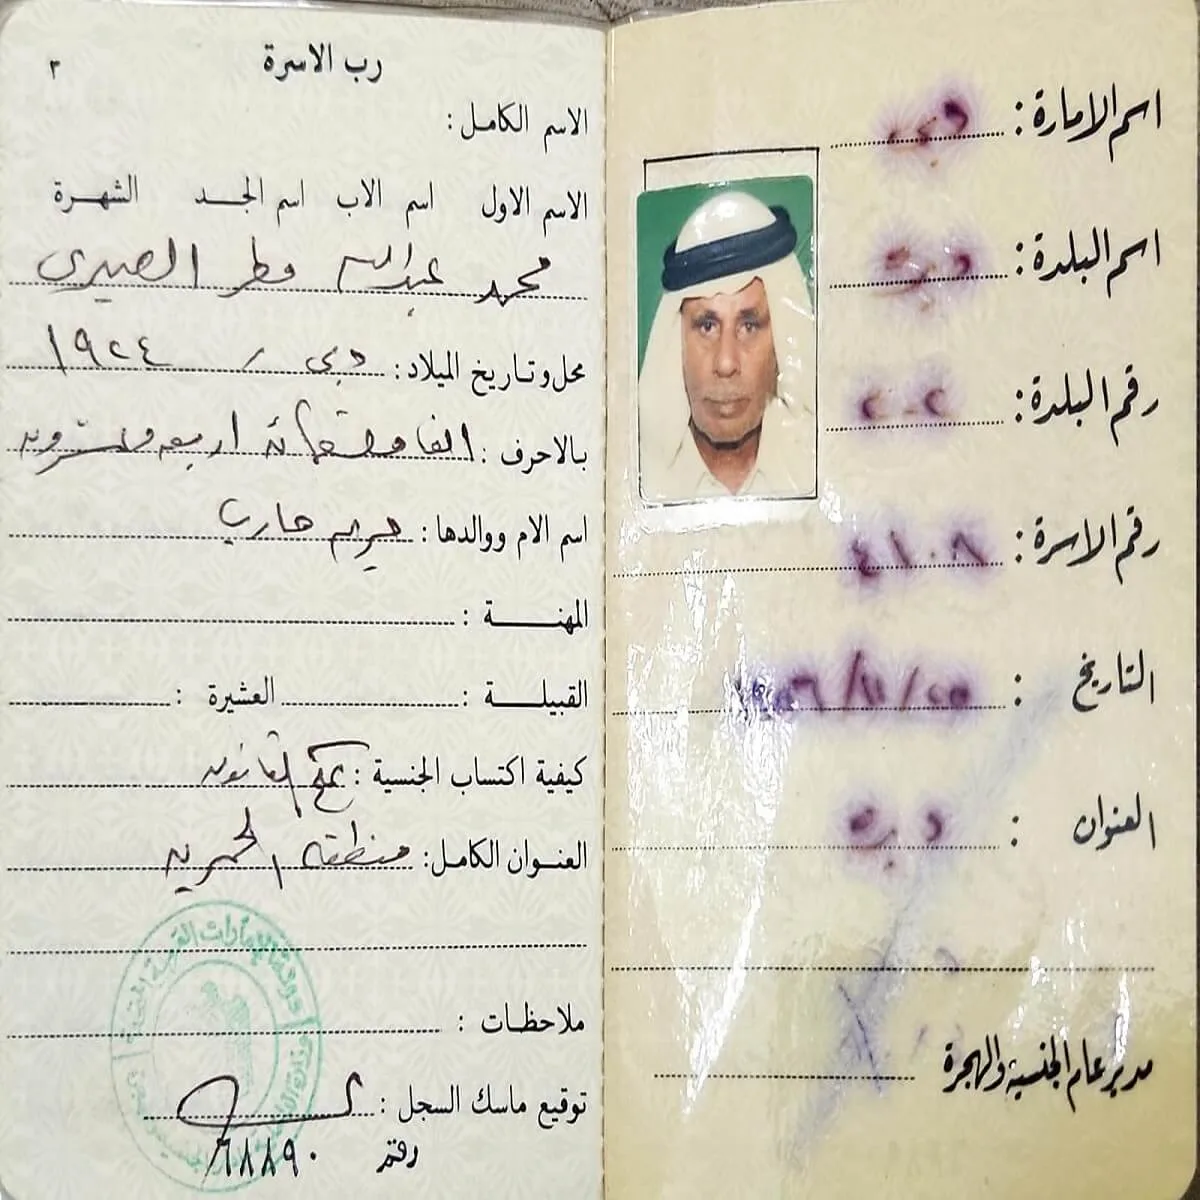 اسم الامارة : دبي
اسم البلدة : دبي
رقم البلدة : ٢٠٢
رقم الاسرة : ٤١٠٨
التاريخ :
العنوان : دبي
مدير عام الجنسية والهجرة
٣
رب الاسرة
الاسم الكامل :
الاسم الاول اسم الاب اسم الجد الشهرة
محمد عبدالله مطر
محل وتاريخ الميلاد : دبي / ١٩٢٤
بالاحرف : الف وتسعمائة اربعه وعشرون
اسم الام ووالدها : مريم حارب
المهنة :
القبيلة : العشيرة :
كيفية اكتساب الجنسية : بحكم القانون
العنوان الكامل : منطقة الحمرية
ملاحظات :
توقيع ماسك السجل :
رقم
دولة الإمارات العربية المتحدة